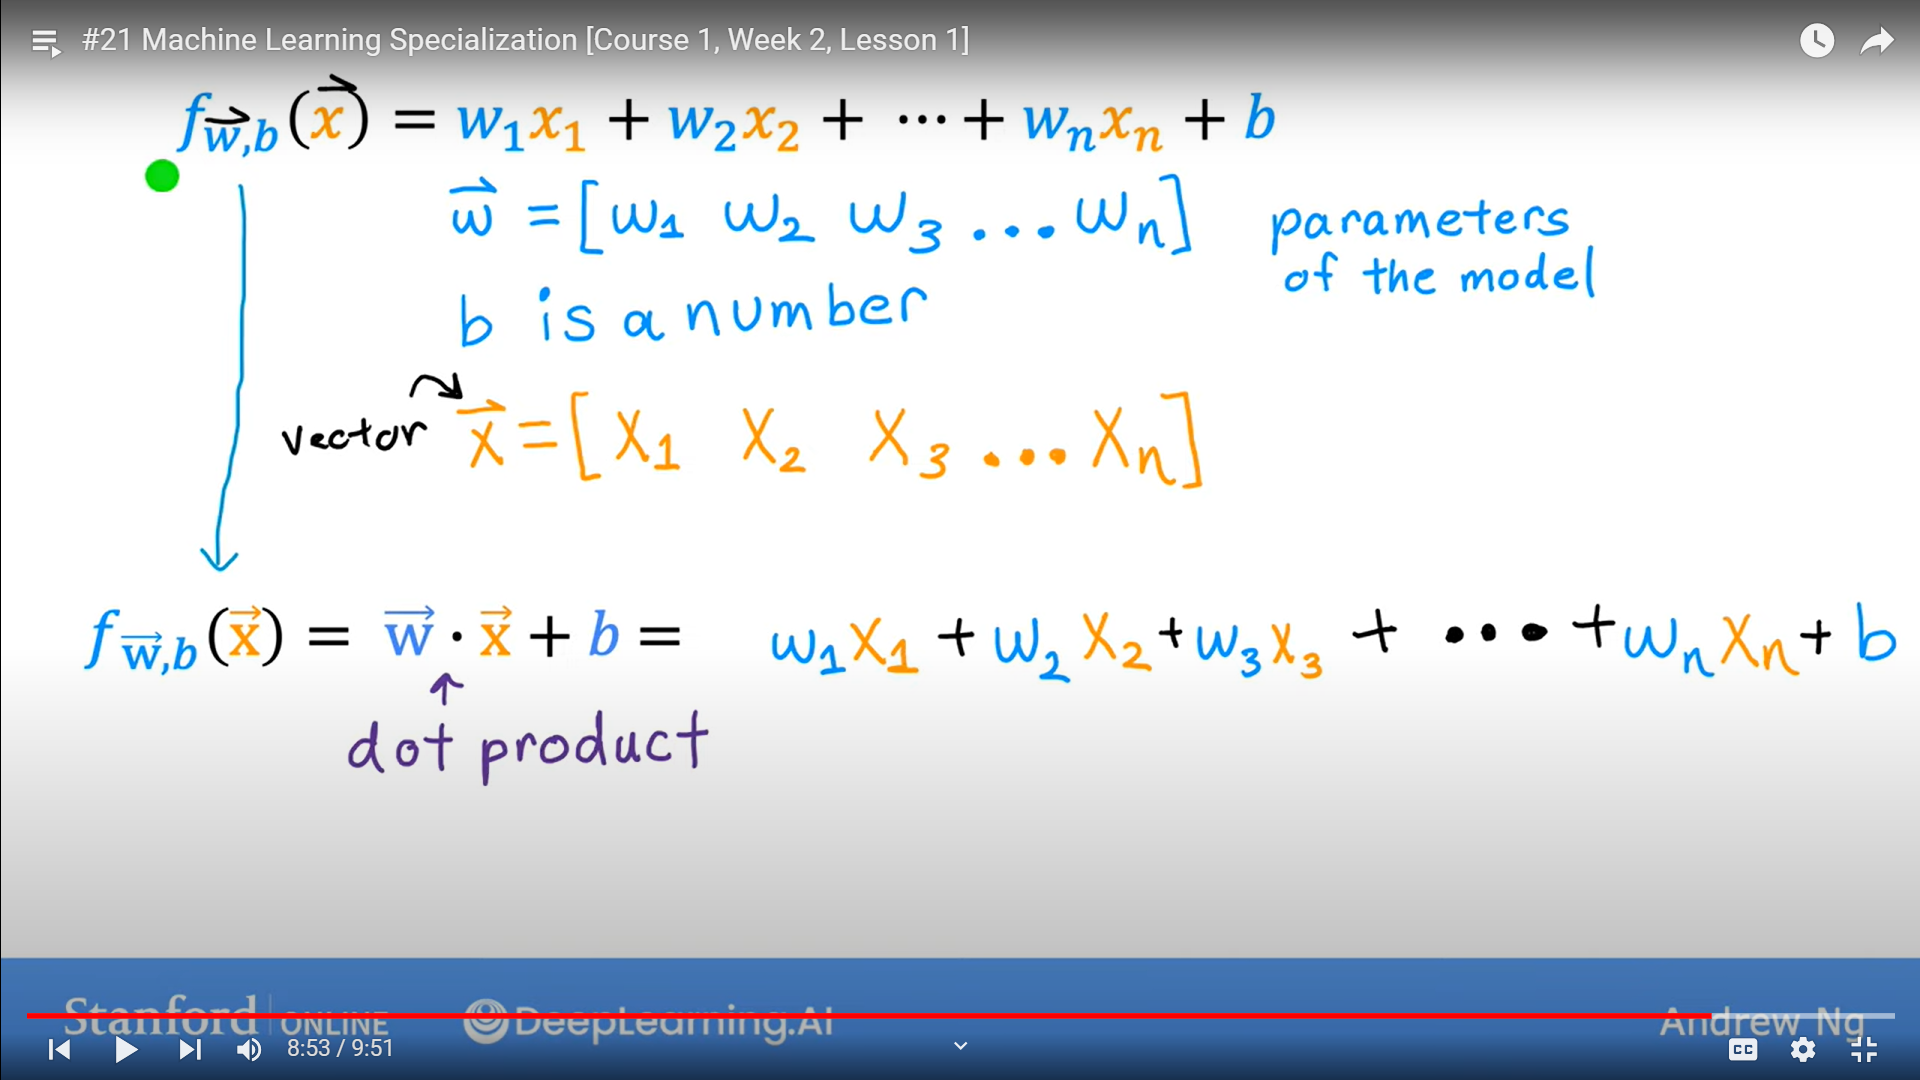 #21 Machine Learning Specialization [Course 1, Week 2, Lesson 1]
f_{w⃗,b}(x⃗) = w₁x₁ + w₂x₂ + ⋯ + wₙxₙ + b
w⃗ = [w₁ w₂ w₃ ... wₙ] parameters
of the model
b is a number
vector x⃗ = [x₁ x₂ x₃ ... xₙ]
f_{w⃗,b}(x⃗) = w⃗ · x⃗ + b = w₁x₁ + w₂x₂ + w₃x₃ + ... + wₙxₙ + b
dot product
Stanford ONLINE DeepLearning.AI Andrew Ng
8:53 / 9:51 CC